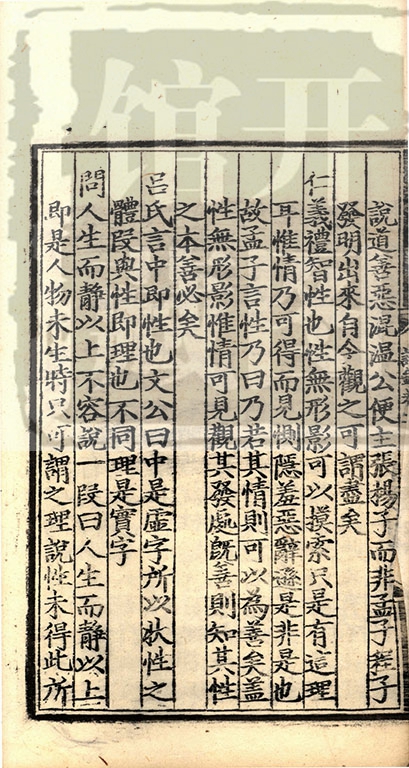 說道善惡混溫公便主張楊子而非孟子程子
發明出來自今觀之可謂盡矣
仁義禮智性也性無形影可以摸索只是有這理
耳惟情乃可得而見惻隱羞惡辭遜是非是也
故孟子言性乃曰乃若其情則可以為善矣蓋
性無形影惟情可見觀其發處既善則知其性
之本善必矣
呂氏言中即性也文公曰中是虛字所以狀性之
體段與性即理也不同理是實字
問人生而靜以上不容說一段曰人生而靜以上
即是人物未生時只可謂之理說性未得此所